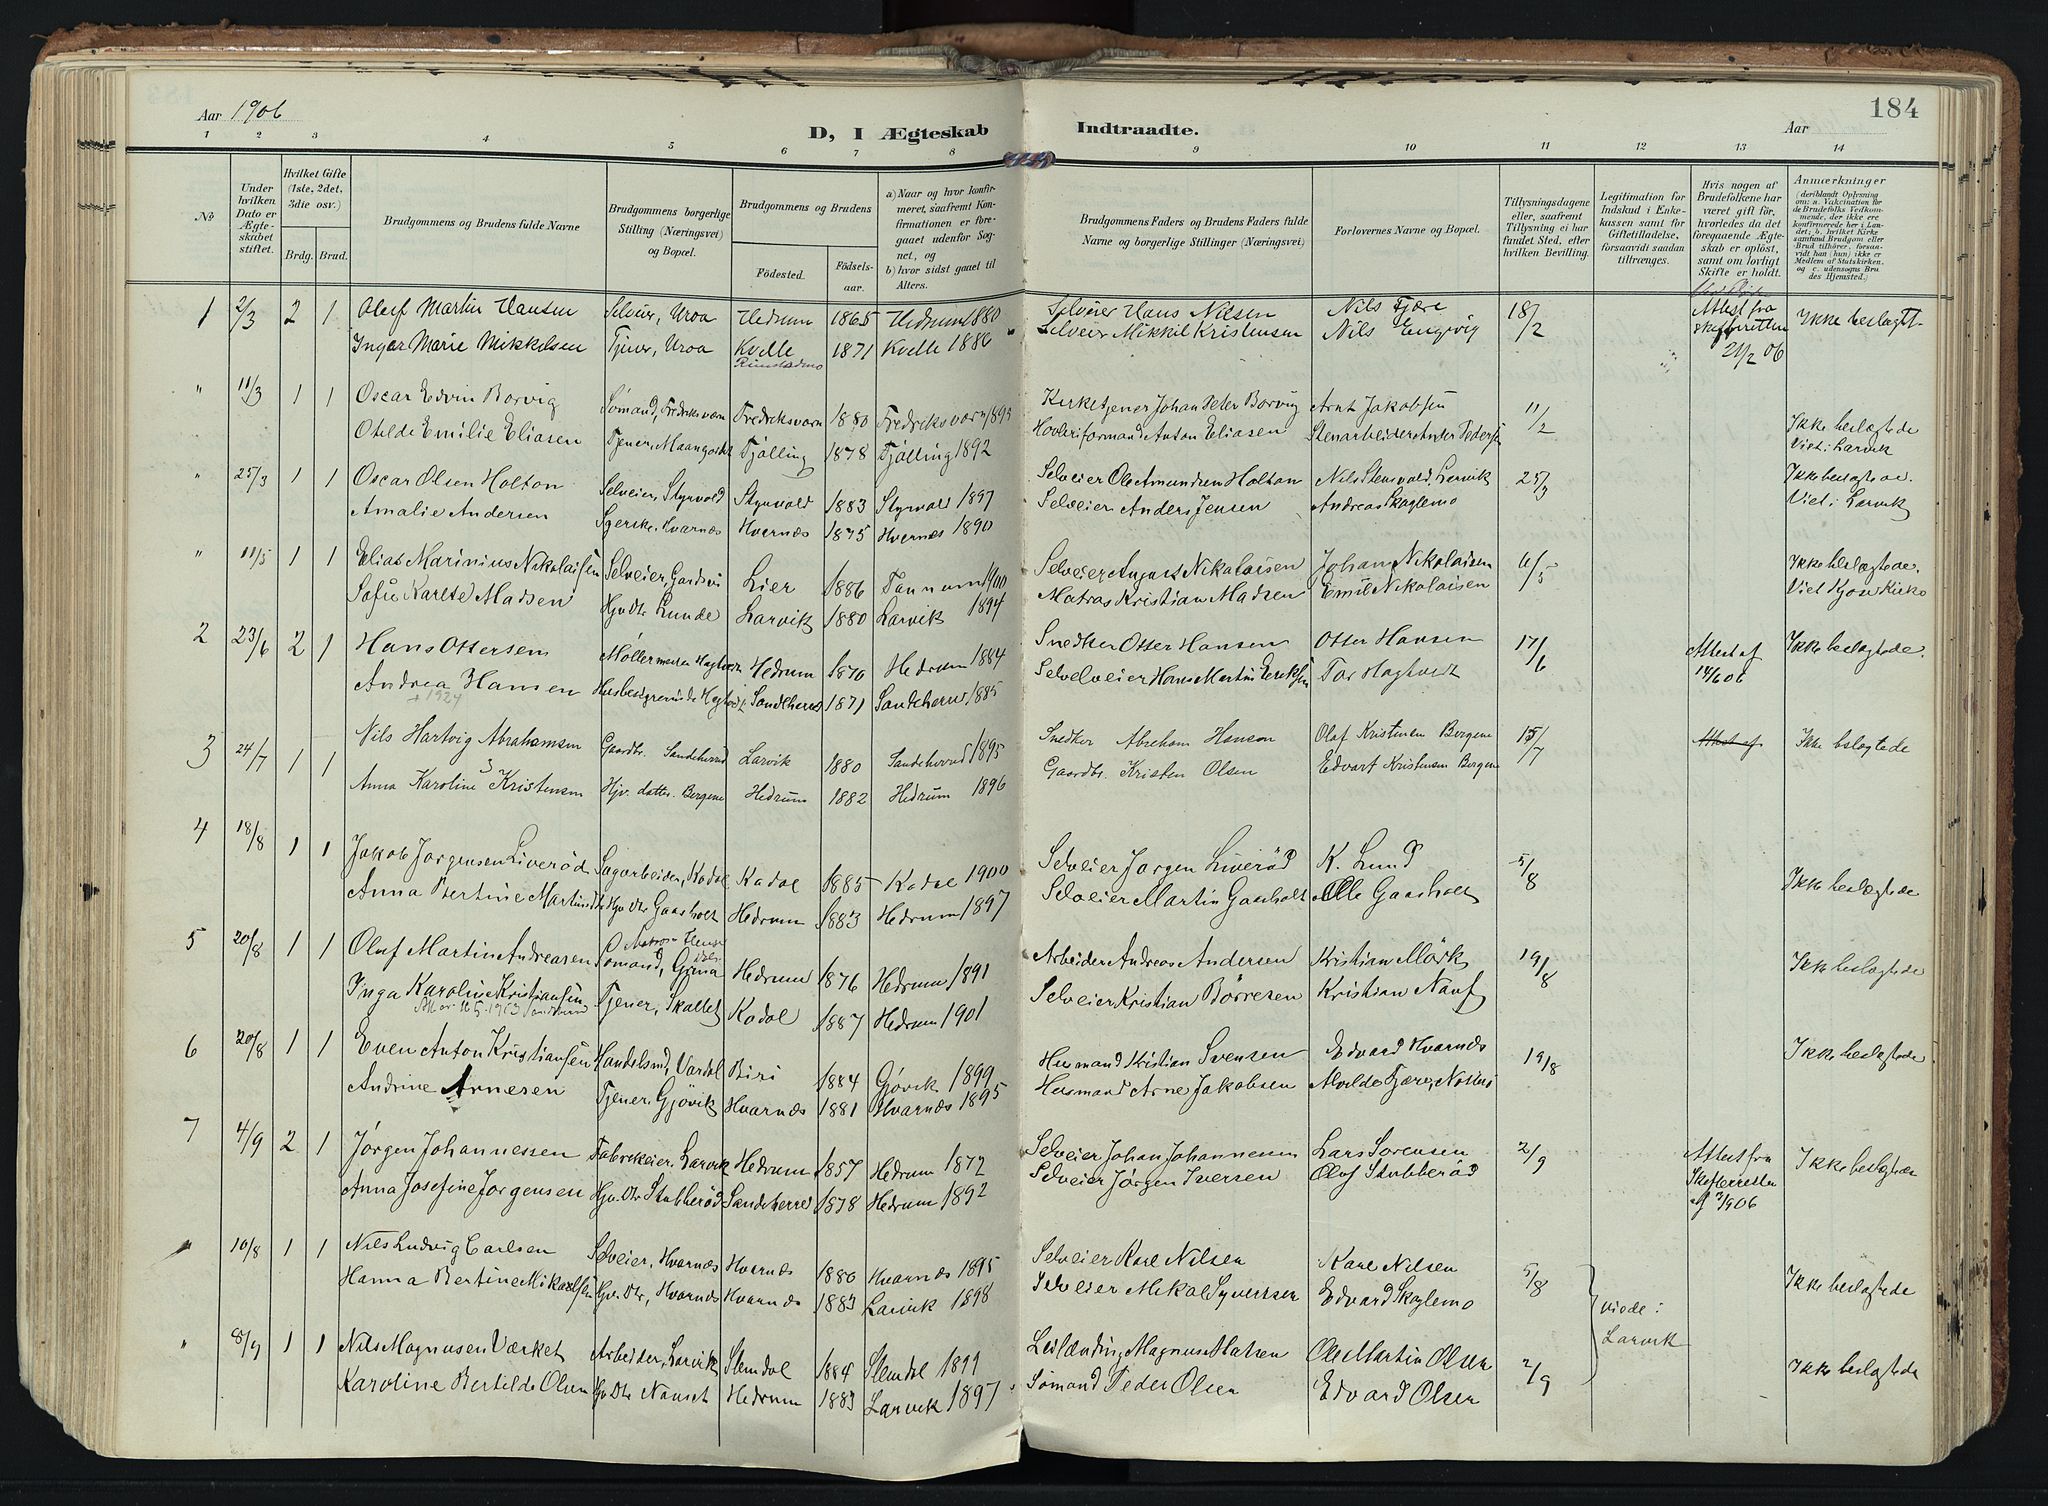 184
Aar 1906
D, I Ægteskab Indtraadte.
Aar
1 2 3 4 5 6 7 8 9 10 11 12 13 14
No
Under hvilken Dato er Ægteskabet stiftet.
Hvilket Gifte (1ste, 2det, 3die osv.)
Brdg. Brud.
Brudgommens og Brudens fulde Navne
Brudgommens borgerlige Stilling (Næringsvei) og Bopæl.
Brudgommens og Brudens
Födested.
Födsels-aar.
a) Naar og hvor konfirmeret, saafremt Konfirmationen er foregaaet udenfor Sognet, og b) hvor sidst gaaet til Alters.
Brudgommens Faders og Brudens Faders fulde Navne og borgerlige Stillinger (Næringsvei)
Forlovernes Navne og Bopæl.
Tillysningsdagene eller, saafremt Tillysning ei har fundet Sted, efter hvilken Bevilling.
Legitimation for Indskud i Enkekassen samt for Giftetilladelse, forsaavidt saadan tiltrænges.
Hvis nogen af Brudefolkene har været gift för, hvorledes da det foregaaende Ægteskab er oplöst, samt om lovligt Skifte er holdt.
Anmærkninger (deriblandt Oplysning om: a. Vakcination for de Brudefolks Vedkommende, der ikke ere konfirmerede her i Landet; b. hvilket Kirkesamfund Brudgom eller Brud tilhörer, forsaavidt han (hun) ikke er Medlem af Statskirken, og c. udensogns Brudes Hjemsted.)
1 2/3 2 1 Oluf Martin Hansen Selveier, Uroa Hedrum 1865 Hedrum 1880 Selveier Hans Nilsen Nils Fjære 18/2 Attest fra Ikke beslægt.
Inger Marie Mikkelsen Tjener, Uroa Kvelle 1871 Kvelle 1886 Selveier Mikkil Kristensen Nils Engvig skifteretten 21/2 06
" 11/3 1 1 Oscar Edvin Borvig Sömand, Fredriksværn Fredriksværn 1880 Fredriksværn 1895 Kirketjener Johan Peter Borvig Arnt Jakobsen 11/2 Ikke beslægtede
Otilde Emilie Eliasen Tjener, Tjölling 1878 Tjölling 1892 Anton Eliasen Stenarbeider Pedersen Viet i Larvik
" 25/3 1 1 Oscar Olsen Holton Selveier, Styrvold Styrvold 1883 Styrvold 1897 Selveier Ole Amundsen Holton Nils Stensvold, Larvik 25/3 Ikke beslægtede.
Amalie Andersen Hvarnes Hvarnes 1875 Hvarnes 1890 Selveier Anders Jensen Andreas Skoglemo Viet i Larvik
" 11/5 1 1 Elias Marinius Nikolaisen Selveier, Lier 1886 Tanum 1900 Selveier August Nikolaisen Johan Nikolaisen 6/5 Ikke beslægtede.
Sofie Karete Madsen Hjv. Dtr. Lunde Larvik 1880 Larvik 1894 Matros Kristian Madsen Emil Nikolaisen Viet Kjose Kirke
2 23/6 2 1 Hans Ottersen Möllermester Hagtvedt Hedrum 1870 Hedrum 1884 Snedker Otter Hansen Otter Hansen 17/6 Attest af Ikke beslægtede.
Andrea Hansen Sandeherred 1871 Sandeherred 1885 Selveier Hans Martin Eriksen Tor Hagtvedt 14/6 06
+ 1924
3 24/7 1 1 Nils Hartvig Abrahamsen Gaardbr. Sandeherred Larvik 1880 Sandeherred 1895 Snedker Abraham Hansen Olaf Kristensen Bergene 15/7 Attest af Ikke beslægtede
Anna Karoline Kristensen Hjv. datter. Bergene Hedrum 1882 Hedrum 1896 Gaardbr. Kristen Olsen Edvart Kristensen Bergene
4 18/8 1 1 Jakob Jorgensen Liveröd Sagarbeider, Kodal Kodal 1885 Kodal 1900 Selveier Jorgen Liveröd K. Lund 5/8 Ikke beslægtede
Anna Bertine Martinsen Hjv. Dtr. Gaasholt Hedrum 1883 Hedrum 1897 Selveier Martin Gaasholt Olle Gaasholt
5 20/8 1 1 Oluf Martin Andreasen Sömand, Grinna Hedrum 1876 Hedrum 1891 Arbeider Andreas Andersen Kristian Mörk 19/8 Ikke beslægtede
Inga Karoline Kristiansen Tjener, Skallet Kodal 1887 Hedrum 1901 Selveier Kristian Börresen Kristian Nauf
6 20/8 1 1 Even Anton Kristiansen Handelsmd, Vardal Biri 1884 Gjövik 1899 Husmand Kristian Svensen Edvard Hvarnes 19/8 Ikke beslægtede
Andrine Arnesen Tjener Gjövik Hvarnes 1881 Hvarnes 1895 Husmand Arne Jakobsen Alvilde Fjære,
7 4/9 2 1 Jörgen Johannessen Fabrikeier, Larvik Hedrum 1857 Hedrum 1872 Selveier Johan Johannessen Lars Sörensen 2/9 Attest fra Ikke beslægtede
Anna Josefine Jorgensen Hjv. Dtr. Stubberöd Sandeherred 1878 Hedrum 1892 Selveier Jörgen Iversen Oluf Stubberöd Skifteretten af 3/9 06
" 10/8 1 1 Nils Ludvig Carlsen Selveier, Hvarnes Hvarnes 1880 Hvarnes 1895 Selveier Karl Nilsen Karl Nilsen 5/8 Ikke beslægtede
Hanna Bertine Mikaelsen Hjv. Dtr, Hvarnes Hvarnes 1883 Larvik 1898 Selveier Mikal Syvertsen Edvard Skoglemo viede i Larvik
" 8/9 1 1 Nils Magnusen Værket Arbeider, Larvik Slemdal 1884 Slemdal 1899 Leilænding Magnus Matsen Ole Martin Olsen 2/9 Ikke beslægtede
Karoline Bertilde Olsen Hjv. Dtr Nanset Hedrum 1883 Larvik 1897 Sömand Peder Olsen Edvard Olsen